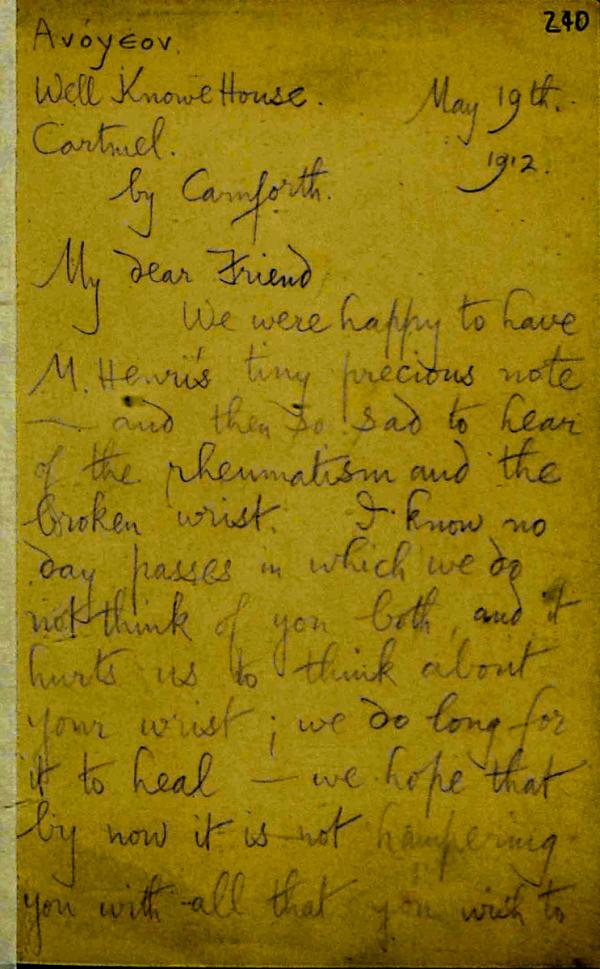 240
Ανόγεον.
Well Knowe House. May 19th.
Cartmel. 1912.
by Carnforth.
My dear Friend
We were happy to have
M. Henri's tiny precious note
— and then so sad to hear
of the rheumatism and the
broken wrist. I know no
day passes in which we do
not think of you both, and it
hurts us to think about
your wrist; we do long for
it to heal — we hope that
by now it is not hampering
you with all that you wish to